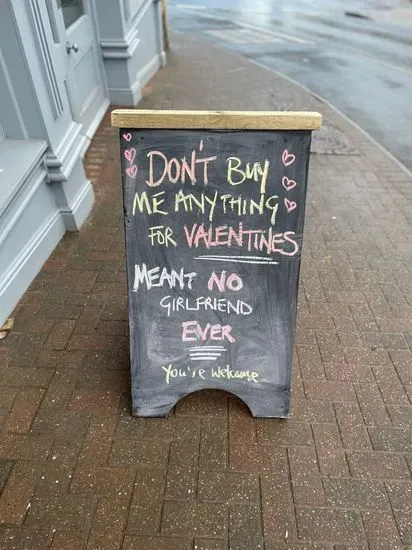 DON'T BUY
ME ANYTHING
FOR VALENTINES
MEANT NO
GIRLFRIEND
EVER
You're welcome